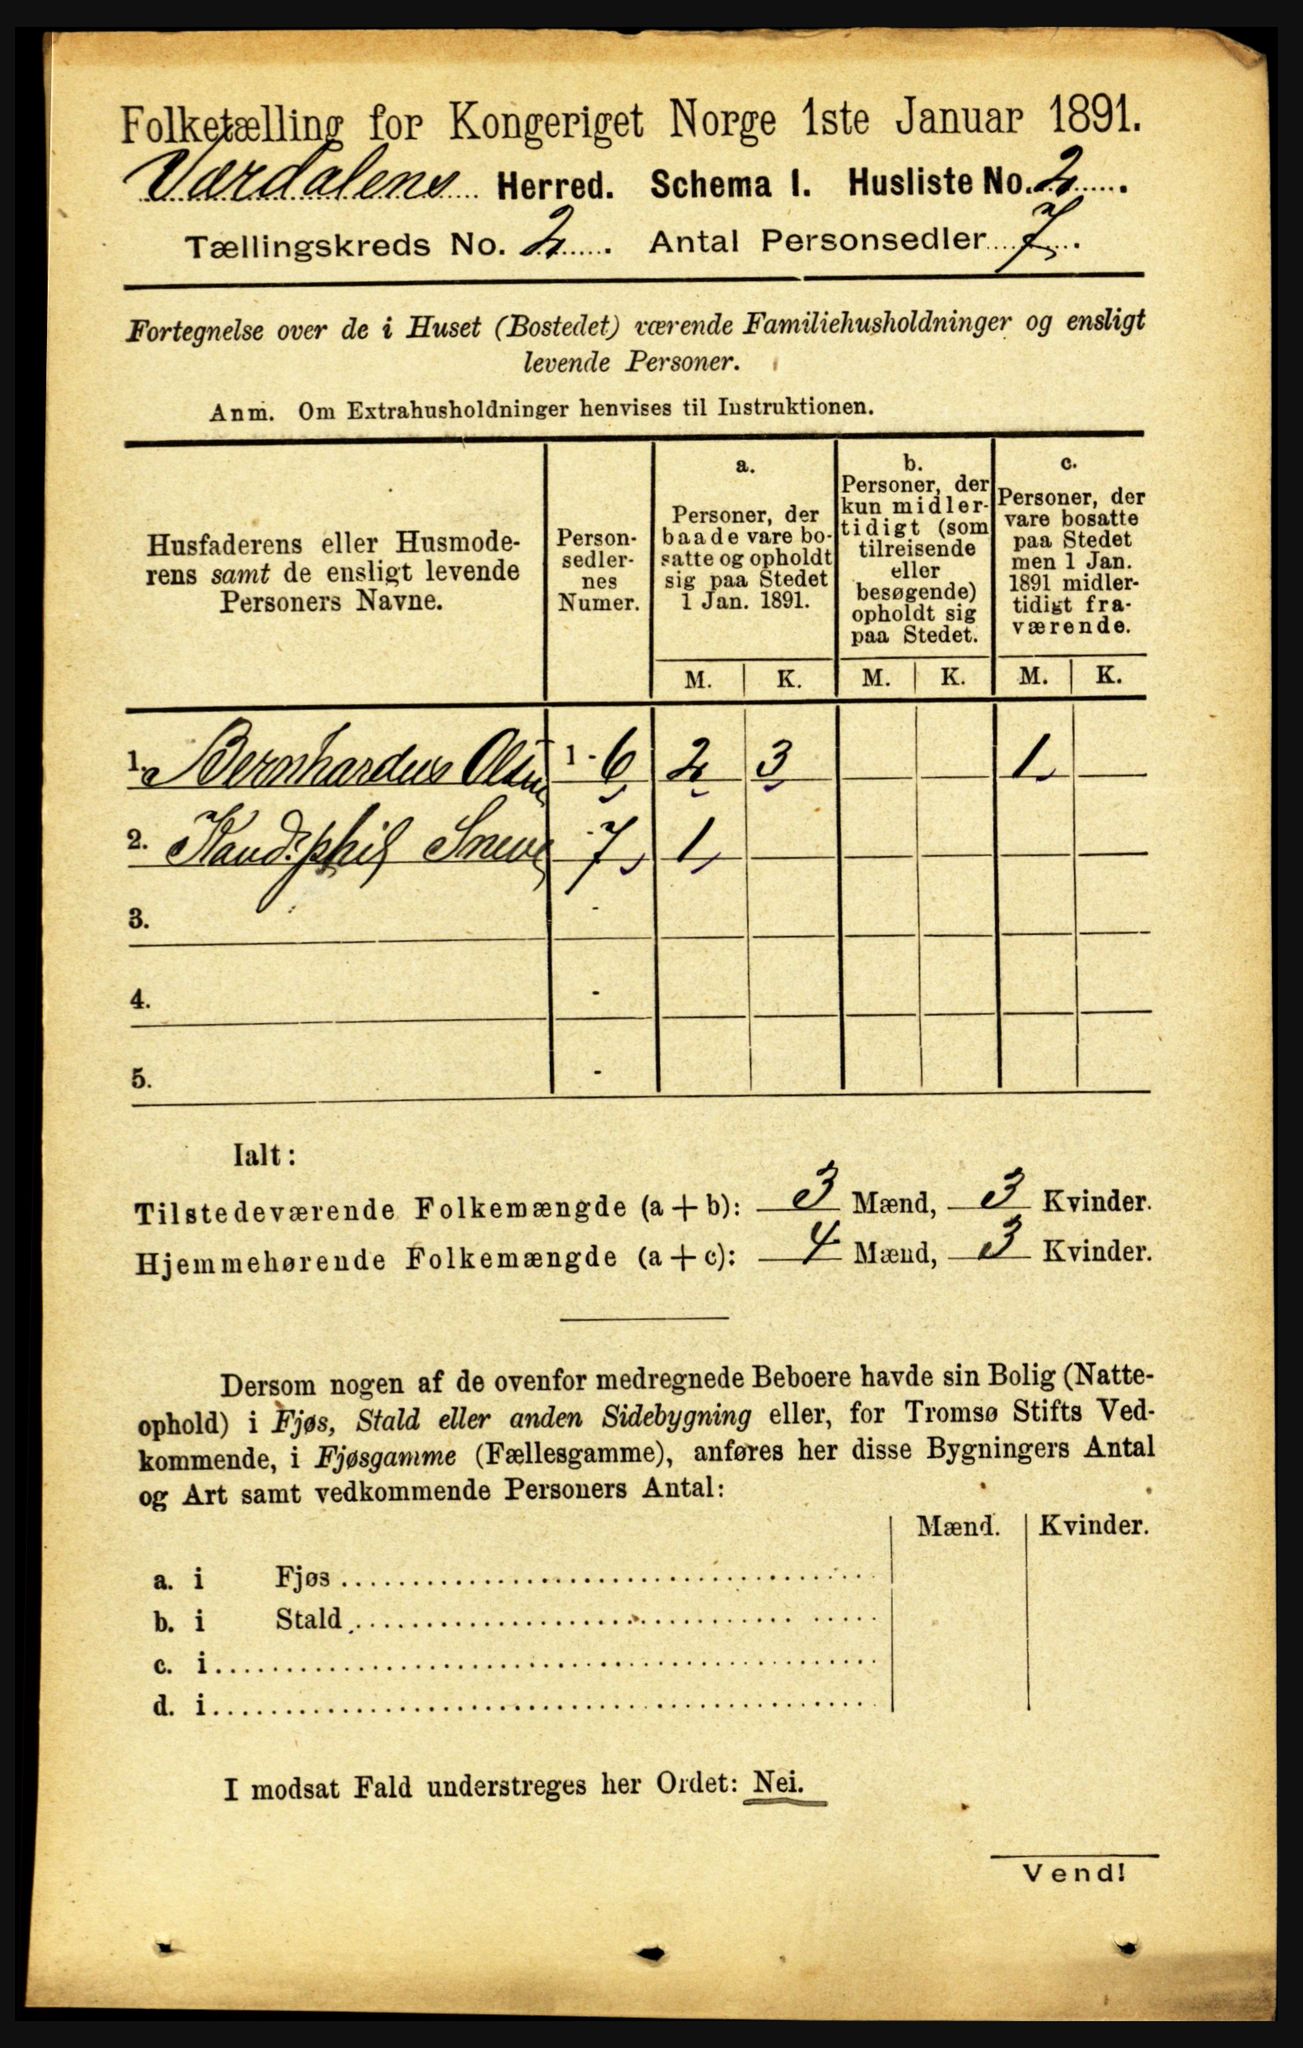 Folketælling for Kongeriget Norge 1ste Januar 1891.
Værdalens Herred. Schema I. Husliste No. 2.
Tællingskreds No. 2. Antal Personsedler 7.
Fortegnelse over de i Huset (Bostedet) værende Familiehusholdninger og ensligt
levende Personer.
Anm. Om Extrahusholdninger henvises til Instruktionen.
Husfaderens eller Husmode-
rens samt de ensligt levende
Personers Navne.
Person-
sedler-
nes
Numer.
a.
Personer, der
baade vare bo-
satte og opholdt
sig paa Stedet
1 Jan. 1891.
b.
Personer, der
kun midler-
tidigt (som
tilreisende
eller
besøgende)
opholdt sig
paa Stedet.
c.
Personer, der
vare bosatte
paa Stedet
men 1 Jan.
1891 midler-
tidigt fra-
værende.
M. K. M. K. M. K.
1. Bernhardus Olsen 1 - 6 2 3 1
2. Kand. phil Sneve - 7 1
3. -
4. -
5. -
Ialt:
Tilstedeværende Folkemængde (a + b): 3 Mænd, 3 Kvinder.
Hjemmehørende Folkemængde (a + c): 4 Mænd, 3 Kvinder.
Dersom nogen af de ovenfor medregnede Beboere havde sin Bolig (Natte-
ophold) i Fjøs, Stald eller anden Sidebygning eller, for Tromsø Stifts Ved-
kommende, i Fjøsgamme (Fællesgamme), anføres her disse Bygningers Antal
og Art samt vedkommende Personers Antal:
Mænd. Kvinder.
a. i Fjøs
b. i Stald
c. i
d. i
I modsat Fald understreges her Ordet: Nei.
Vend!